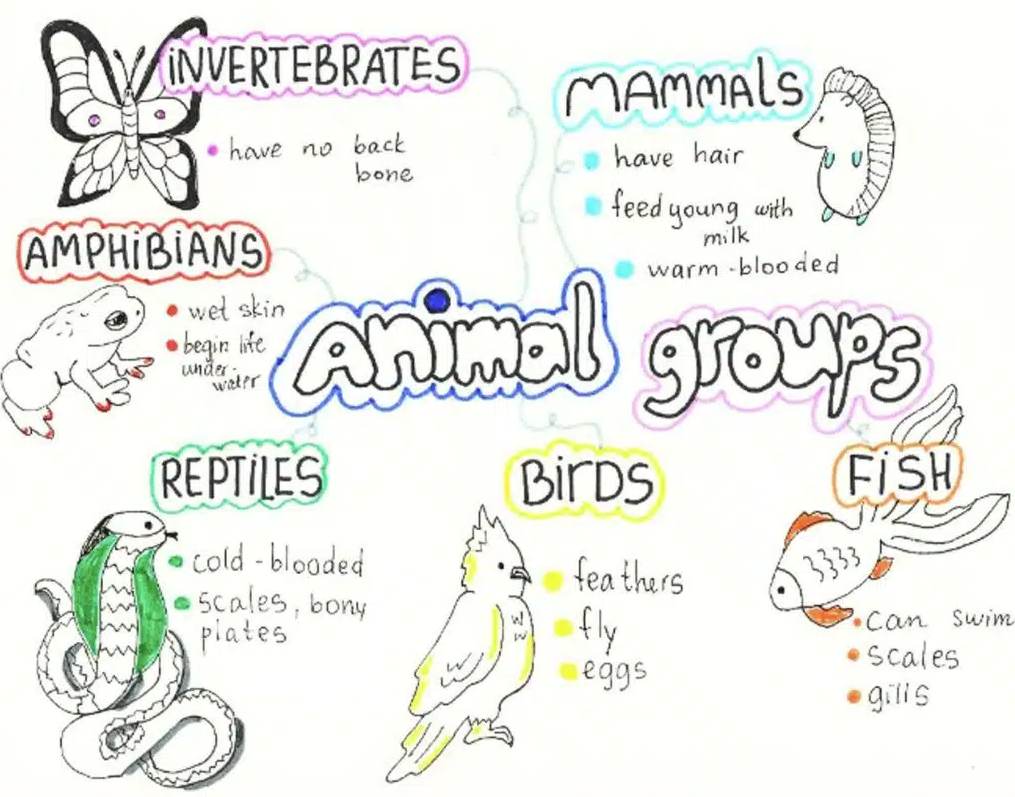 iNVERTEBRATES
• have no back
bone
MAMMALS
have hair
feed young with
milk
warm-blooded
AMPHiBiANS
• wet skin
• begin life
under-
water
animal groups
REPTiLES
• cold-blooded
• scales, bony
plates
BiRDS
feathers
fly
eggs
FiSH
• can swim
• scales
• gills